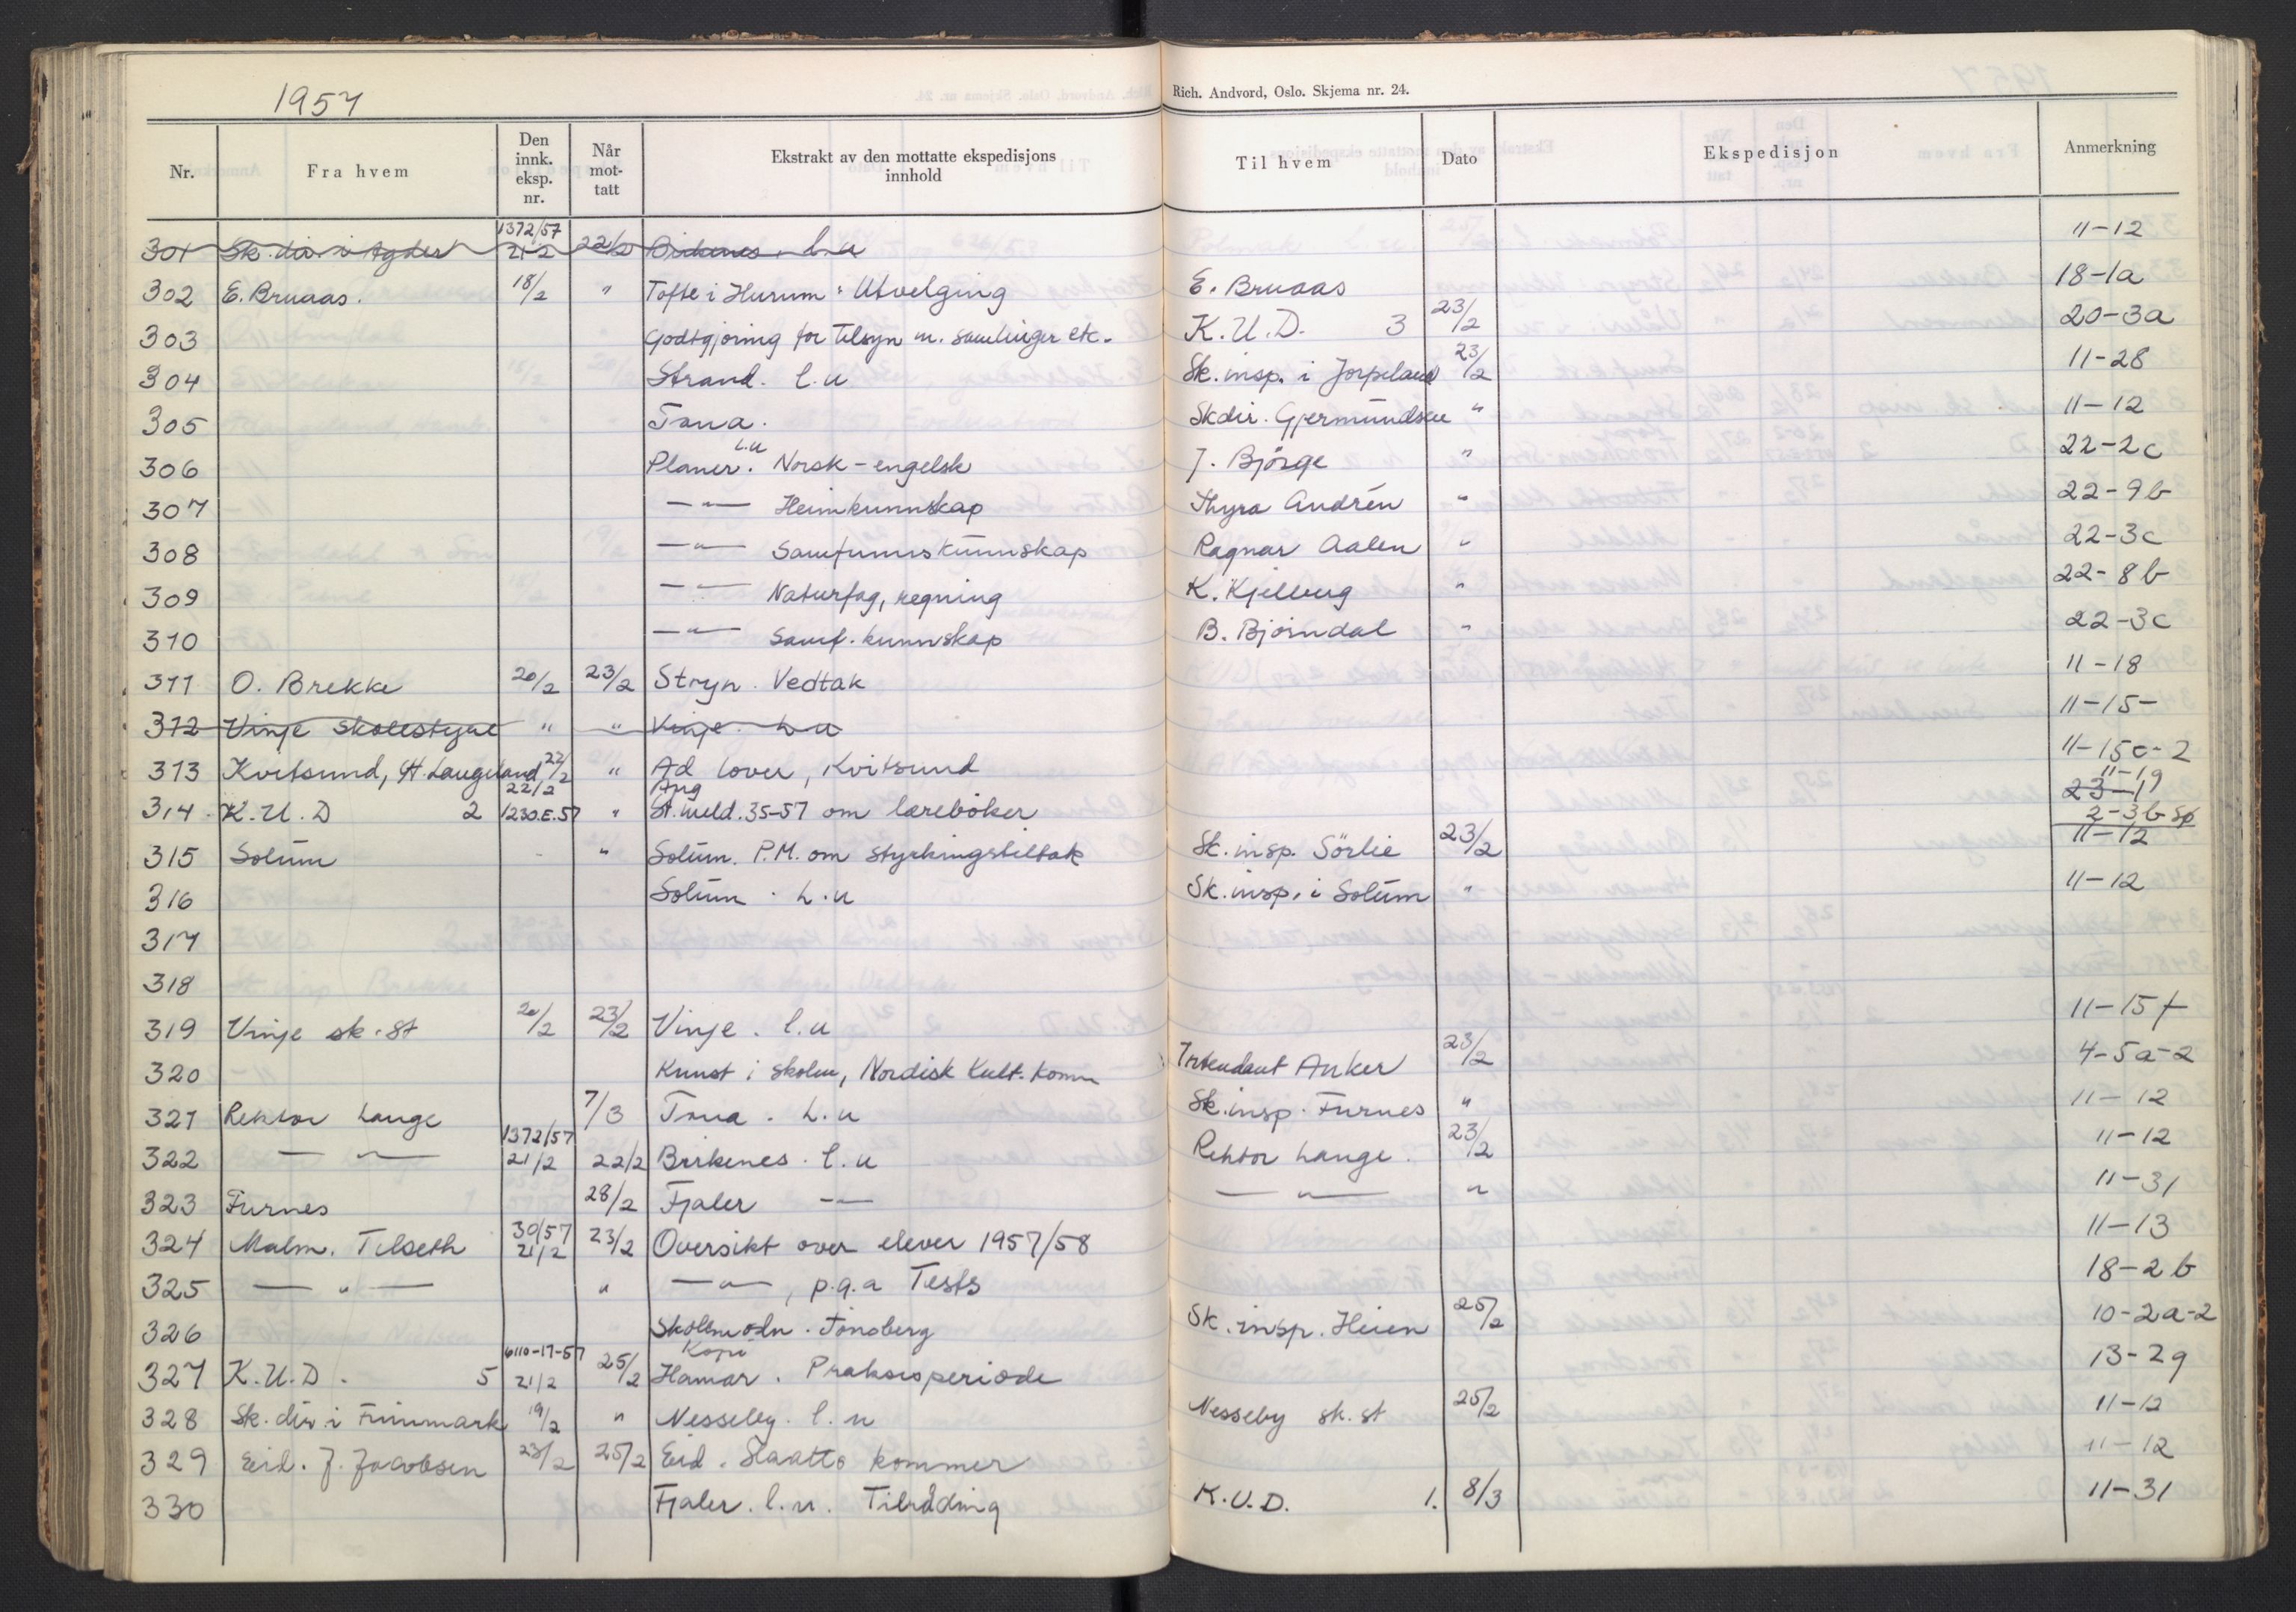 1957
Rich. Andvord, Oslo. Skjema nr. 24.
Nr. Fra hvem Den innk. eksp. nr. Når mot-tatt Ekstrakt av den mottatte ekspedisjons innhold Til hvem Dato Ekspedisjon Anmerkning
301 Sk.dir. i Agder 1372/57 21-2 22/2 Birkenes. l.u 11-12
302 E. Bruaas. 18/2 " Tofte i Hurum: Utvelging E. Bruaas 18-1a
303 Godtgjøring for tilsyn m. samlinger etc. K.U.D. 3 23/2 20-3a
304 Strand. l.u Sk.insp. i Jørpeland 23/2 11-28
305 Tana. Skdir. Gjermundsen " 11-12
306 Planer. l.u Norsk-engelsk J. Bjørge " 22-2c
307 —"— Heimkunnskap Thyra Andrén " 22-9b
308 —"— Samfunnskunnskap Ragnar Aalen " 22-3c
309 —"— Naturfag, regning K. Kjelberg " 22-8b
310 —"— Samf. kunnskap B. Bjørndal " 22-3c
311 O. Brekke 20/2 23/2 Stryn. Vedtak 11-18
312 Vinje skolestyre " " Vinje. L.u 11-15-
313 Kvitsund, H. Laugeland 22/2 " Ad lover, Kvitsund 11-15c-2
314 K.U.D 2 22/2 1230.E.57 " Ang St.meld. 35-57 om lærebøker 11-19 23-19 2-3b
315 Solum - " Solum. P.M. om styrkingstiltak Sk.insp. Sörlie 23/2 11-12
316 Solum. L.u Sk.insp. i Solum " 11-12
317
318
319 Vinje sk.st 20/2 23/2 Vinje. l.u 11-15f
320 Kunst i skolen, Nordisk Kult. Komm Intendant Anker 23/2 4-5a-2
321 Rektor Lange 7/3 Tana. L.u Sk.insp. Furnes " 11-12
322 —"— 1372/57 21/2 22/2 Birkenes. l.u Rektor Lange. 23/2 11-12
323 Furnes 28/2 Fjaler —"— —"— " 11-31
324 Malm. Tilseth 30/57 21/2 23/2 Oversikt over elever 1957/58 11-13
325 —"— " —"—, p.g.a Tests 18-2b
326 Skolemodn. Tönsberg Sk.insp. Heien 25/2 10-2a-2
327 K.U.D. 5 6110-17-57 21/2 25/2 Kopi Hamar. Praksisperiode 13-2g
328 Sk.dir. i Finnmark 19/2 " Nesseby. l.u Nesseby sk.st 25/2 11-12
329 Eid. J. Jacobsen 23/2 25/2 Eid. Slaatto kommer 11-12
330 Fjaler. l.u. Tilråding K.U.D. 1. 8/3 11-31